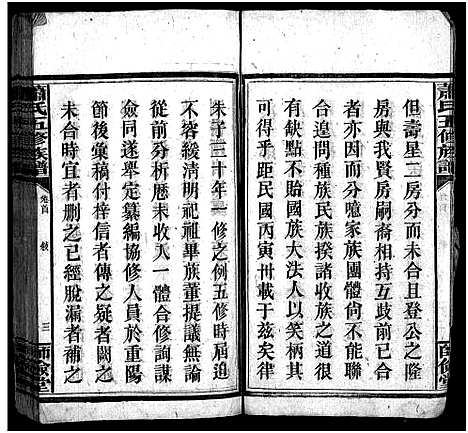 但壽星二房分而未合且登公之隆
房與我賢房嗣裔相互歧前已舉行
者亦立而分噫家族團體尙不能聯
合遑問種族民族揆諸收族之道很
有缺點不貽國族大法人以笑柄其
可得乎距民國丙寅卅載于兹矣律
朱子三十年一修之例五修時屆迫
不容緩清明祀祖畢族董提議無間
從前分析歷未收入一體合修詢謀
僉同遂舉定纂編協修人員於重陽
節後彙稿付梓信者傳之疑者闕之
未合時宜者刪之已經脫漏者補之
蕭氏五修族譜
卷首
敘
三
師儉堂